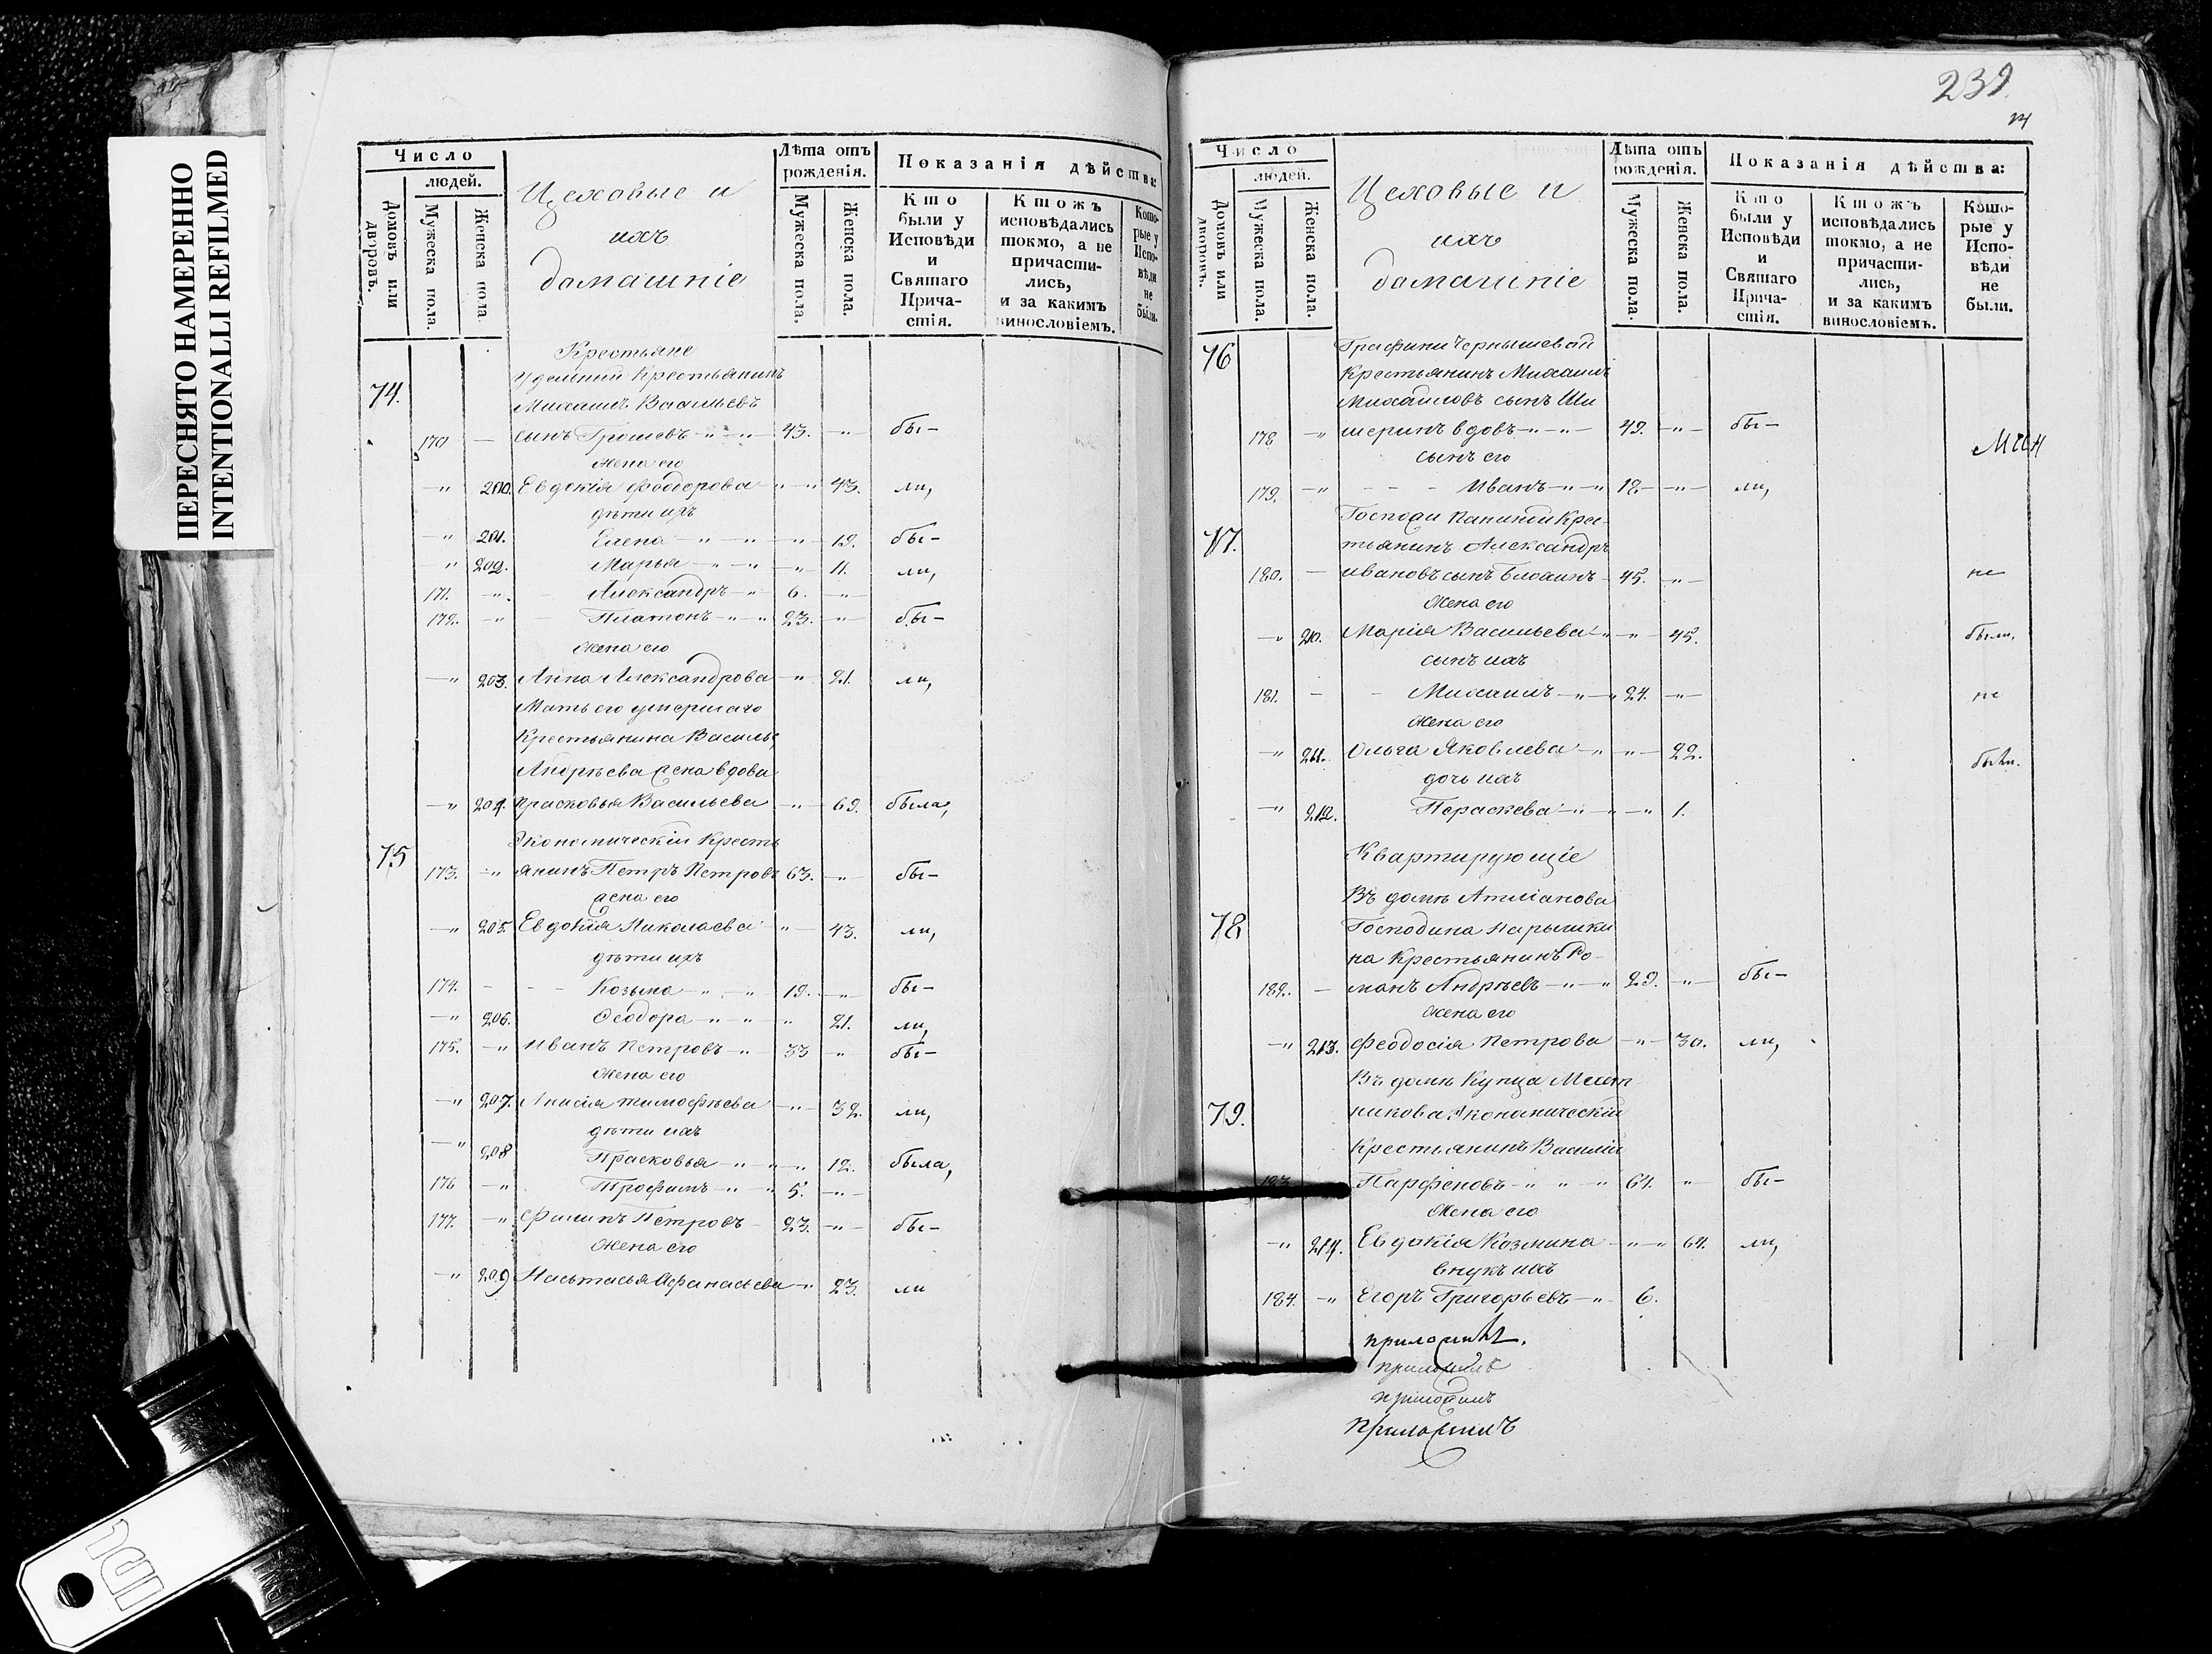 ПЕРЕСНЯТО НАМЕРЕННО
INTENTIONALLI REFILMED
Число
людей.
Домовъ или дворовъ.
Мужеска пола.
Женска пола.
Цеховые и
ихъ
домашніе
Лѣта отъ рожденія.
Мужеска пола.
Женска пола.
Показанія дѣйства:
Кто были у Исповѣди и Святаго Причастія.
Ктожъ исповѣдались токмо, а не причастились, и за какимъ винословіемъ.
Которые у Исповѣди не были.
Крестьяне
74. Удельний Крестьянинъ
Михаилъ Васильевъ
170 — сынъ Грошевъ 43. бы-
жена его
200. Евдокія Феодорова 43. ли,
дѣти ихъ
201. Елена 19. бы-
202. Марья 11. ли,
171. Александръ 6.
172. Платонъ 23. бы-
жена его
203. Анна Александрова 21. ли,
Мать его умершаго
Крестьянина Василья
Андрѣева жена вдова
204. Прасковья Васильева 69. была,
75 Экономическій Кресть
173. янинъ Петръ Петровъ 63. бы-
жена его
205. Евдокія Николаева 43. ли,
дѣти ихъ
174. Козьма 19. бы-
206. Феодора 21. ли,
175. Иванъ Петровъ 33 бы-
жена его
207. Тимофѣева 32. ли,
дѣти ихъ
208 Прасковья 12. была,
176 Трофимъ 5.
177. Филипъ Петровъ 23. бы-
жена его
209 Настасья Афанасьева 23. ли
239
Число
людей.
Домовъ или дворовъ.
Мужеска пола.
Женска пола.
Цеховые и
ихъ
домашніе
Лѣта отъ рожденія.
Мужеска пола.
Женска пола.
Показанія дѣйства:
Кто были у Исповѣди и Святаго Причастія.
Ктожъ исповѣдались токмо, а не причастились, и за какимъ винословіемъ.
Которые у Исповѣди не были.
76 Графини Чернышевой
Крестьянинъ Михаилъ
Михаиловъ сынъ Ши
178 шеринъ вдовъ 49. бы-
сынъ его
179. Иванъ 18 ли,
77. Госпожи Паниной Крес-
тьянинъ Александръ
180. Ивановъ сынъ Блохинъ 45. не
жена его
210. Марія Васильева 45. были,
сынъ ихъ
181. Михаилъ 24. не
жена его
211. Ольга Яковлева 22. были.
дочь ихъ
212. Параскева 1.
Квартирующіе
Въ домѣ
78 Господина Нарышки
на Крестьянинъ Ро-
182. манъ Андрѣевъ 29. бы-
жена его
213. Феодосія Петрова 30. ли,
Въ домѣ Купца
79. никова Экономическій
Крестьянинъ Василій
183 Парфеновъ 61. бы-
жена его
214. Евдокія Козмина 64. ли,
внукъ ихъ
184. Егоръ Григорьевъ 6.